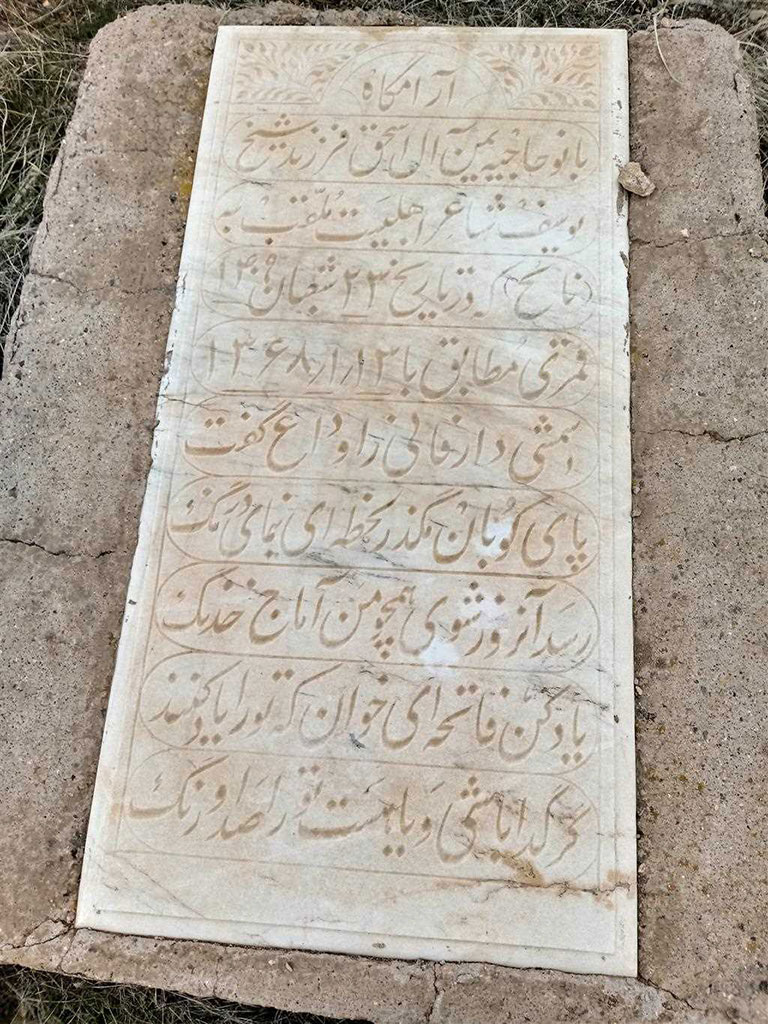 آرامگاه
بانو حاجیه یمین آل اسحق فرزند شیخ
یوسف شاعر اهلبیت مُلّقب به
(ناصح) که در تاریخ ۲۳ شعبان ۱۴۰۹
قمری مطابق با ۱۳۶۸ر۱ر۱۳
شمسی دار فانی را وداع گفت
پای کوبان مگذر لحظه ای بنمای درنگ
رسد آنروز شوی همچو من آماج خدنگ
یاد کن فاتحه ای خوان که تو را یاد کنند
گر گدایا مشی وَ یا هست تو را صد اورنگ